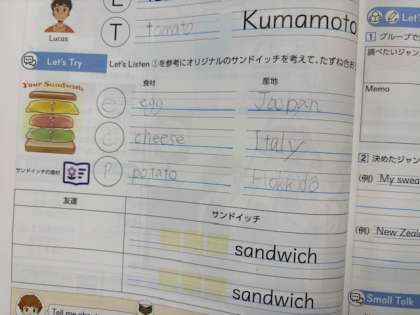 Lucas
T tomato Kumamoto
Let's Try
Let's Listen ①を参考にオリジナルのサンドイッチを考えて、たずね合お
Your Sandwich
食材 産地
e egg Japan
c cheese Italy
P potato Hokkido
サンドイッチの食材
友達 サンドイッチ
sandwich
sandwich
Tell me
Let
1 グループで
調べたいジャン
Memo
2 決めたジャン
(例) My swea
(例) New Zeal
Small Talk